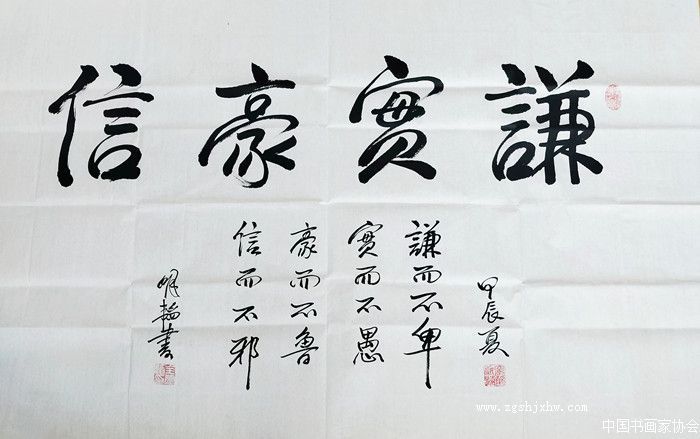 謙實豪信
甲辰夏
謙而不卑
實而不愚
豪而不魯
信而不邪
明韜書
www.zgshjxhw.com
中国书画家协会